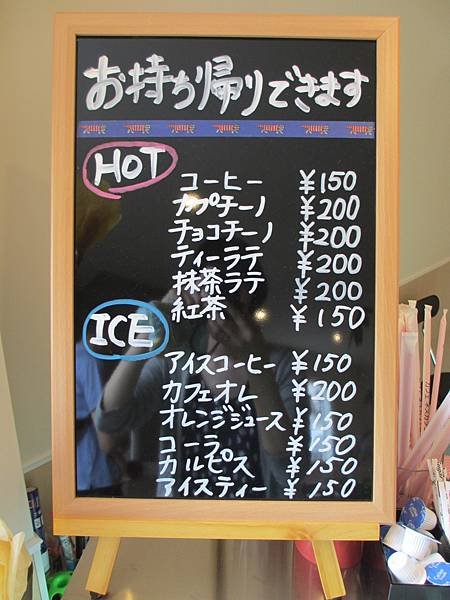 お持ち帰りできます
HOT
コーヒー ¥150
カプチーノ ¥200
チョコチーノ ¥200
ティーラテ ¥200
抹茶ラテ ¥200
紅茶 ¥150
ICE
アイスコーヒー ¥150
カフェオレ ¥200
オレンジジュース ¥150
コーラ ¥150
カルピス ¥150
アイスティー ¥150